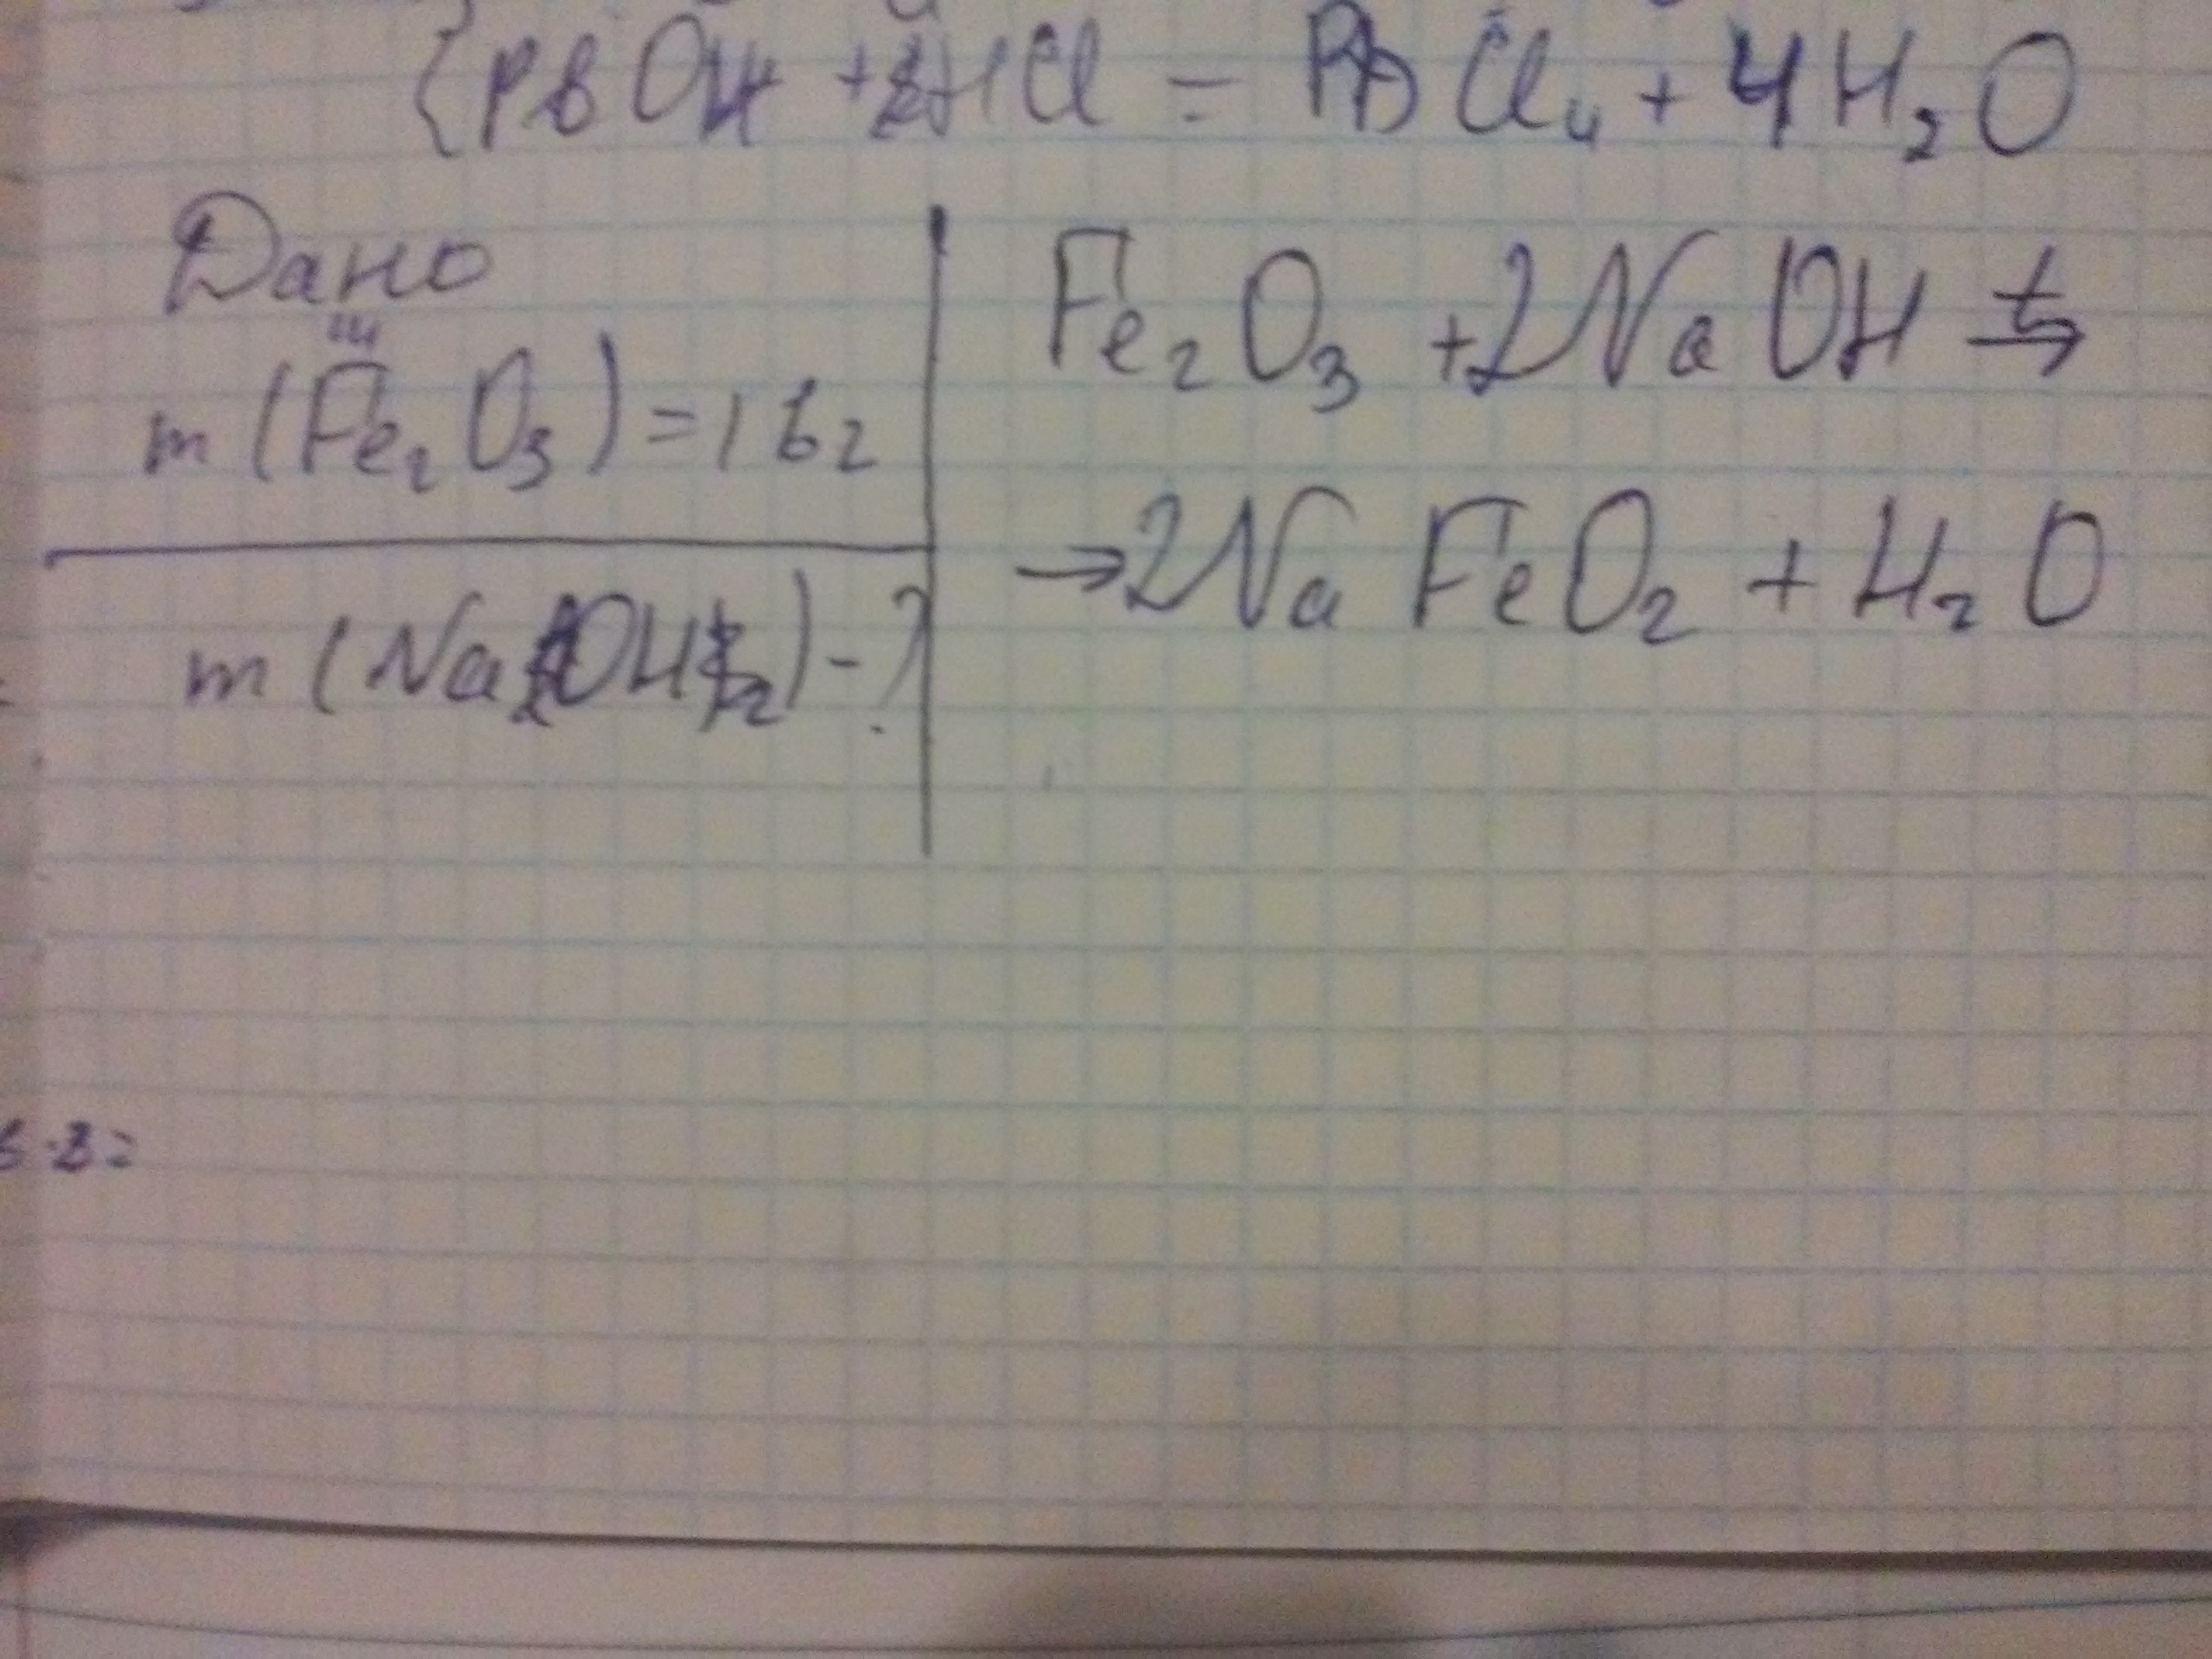 {PbOH + HCl = PbCl₄ + 4H₂O
Дано
III
m (Fe₂O₃) = 16г
m (NaOH) - ?
Fe₂O₃ + 2NaOH →t
→ 2NaFeO₂ + H₂O